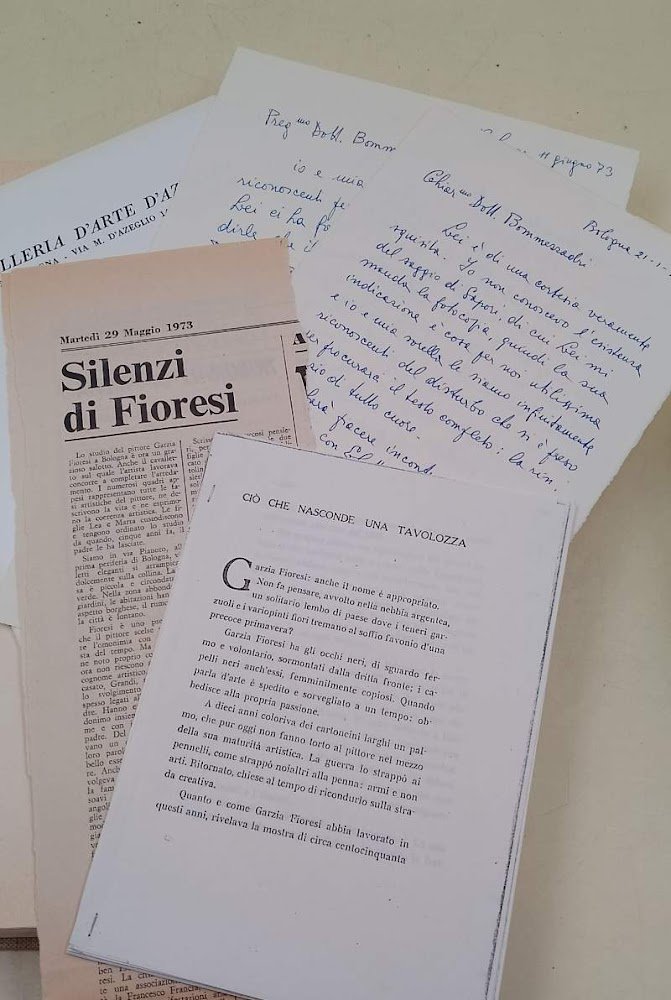 LLERIA D'ARTE D'AZ
GNA - VIA M. D'AZEGLIO 1
Preg.mo Dott. Bomm
io e mia
riconoscenti
Lei ci ha
dirle che il
11 giugno 73
Bologna 21-1-
Chiar.mo Dott. Bommessadri
Lei è di una cortesia veramente
squisita. Io non conoscevo l'esistenza
del saggio di Sapori, di cui Lei mi
manda la fotocopia, quindi la sua
indicazione è cosa per noi utilissima
e io e mia sorella le siamo infinitamente
riconoscenti del disturbo che si è preso
per procurarci il testo completo: la rin
di tutto cuore.
piacere
con
Martedì 29 Maggio 1973
Silenzi
di Fioresi
Lo studio del pittore Garzia
Fioresi a Bologna è ora un gra-
zioso salotto. Anche il cavallet-
to sul quale l'artista lavorava
concorre a completare l'arreda-
mento. I numerosi quadri ap-
pesi rappresentano tutte le fa-
si artistiche del pittore, ne de-
scrivono la vita e ne esprimo-
no la coerenza artistica. Le fi-
glie Lea e Marta custodiscono
e tengono ordinato lo studio
da quando, cinque anni fa, il
padre le ha lasciate.
Siamo in via Pianoro, al
prima periferia di Bologna, v
letti eleganti si arrampica
dolcemente sulla collina. La
sa è piccola e circondat
verde. Nella zona abbond
giardini, le abitazioni han
aspetto borghese, il rumo
la città è lontano.
Fioresi è uno pse
che il pittore scelse
l'omonimia con
sta del tempo. Ma
ne noto proprio co
ora non riescono
cognome artistico
casato, Grandi,
lo svolgimento
spesso legati al
dre. Hanno e
denimo insiem
me e con i
padre. Del
vano un
loro parol
bello esse
re. Anch
volgeva
la fam
soavi
angol
glie
modo
CIÒ CHE NASCONDE UNA TAVOLOZZA
Garzia Fioresi: anche il nome è appropriato.
Non fa pensare, avvolto nella nebbia argentea,
un solitario lembo di paese dove i teneri gar-
zuoli e i variopinti fiori tremano al soffio favonio d'una
precoce primavera?
Garzia Fioresi ha gli occhi neri, di sguardo fer-
mo e volontario, sormontati dalla dritta fronte; i ca-
pelli neri anch'essi, femminilmente copiosi. Quando
parla d'arte è spedito e sorvegliato a un tempo: ob-
bedisce alla propria passione.
A dieci anni coloriva dei cartoncini larghi un pal-
mo, che pur oggi non fanno torto al pittore nel mezzo
della sua maturità artistica. La guerra lo strappò ai
pennelli, come strappò noialtri alla penna: armi e non
arti. Ritornato, chiese al tempo di ricondurlo sulla stra-
da creativa.
Quanto e come Garzia Fioresi abbia lavorato in
questi anni, rivelava la mostra di circa centocinquanta
ben
resi. La
una associazion
la Francesco Francia